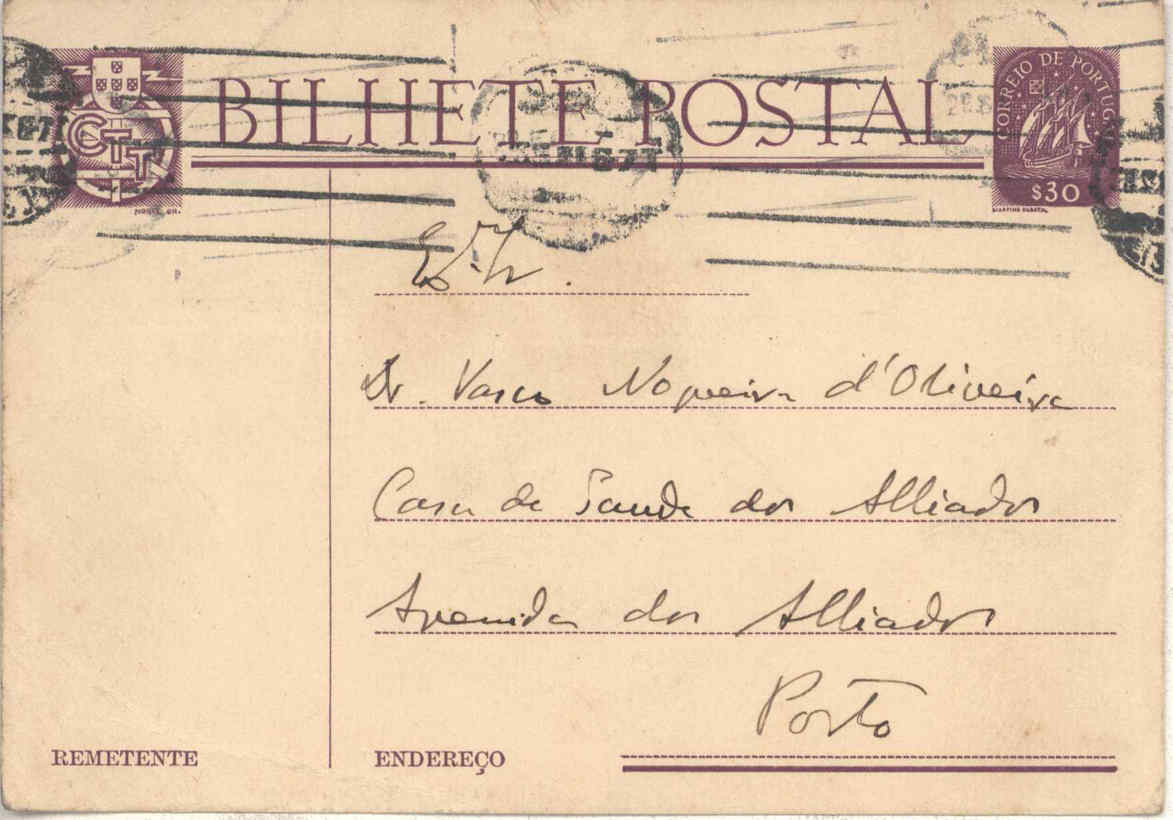 BILHETE POSTAL
CTT
CORREIO DE PORTUGAL
$30
Dr. Vasco Nogueira d'Oliveira
Casa de Saude dos Alliados
Avenida dos Alliados
Porto
REMETENTE
ENDEREÇO